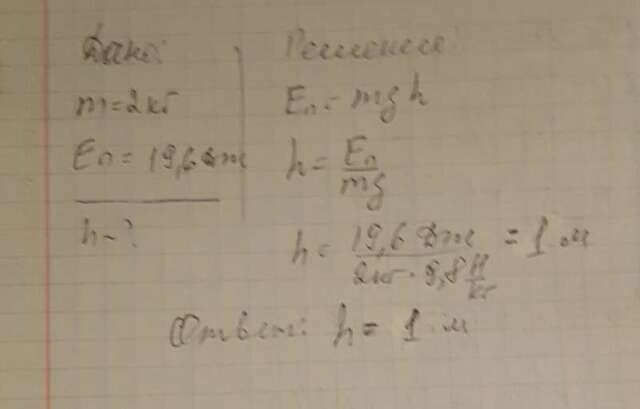 Дано:
m=2кг
Eп= 19,6 Дж
h-?
Решение:
Eп= mgh
h= Eп/mg
h= 19,6 Дж / 2кг · 9,8 Н/кг = 1 м
Ответ: h= 1 м